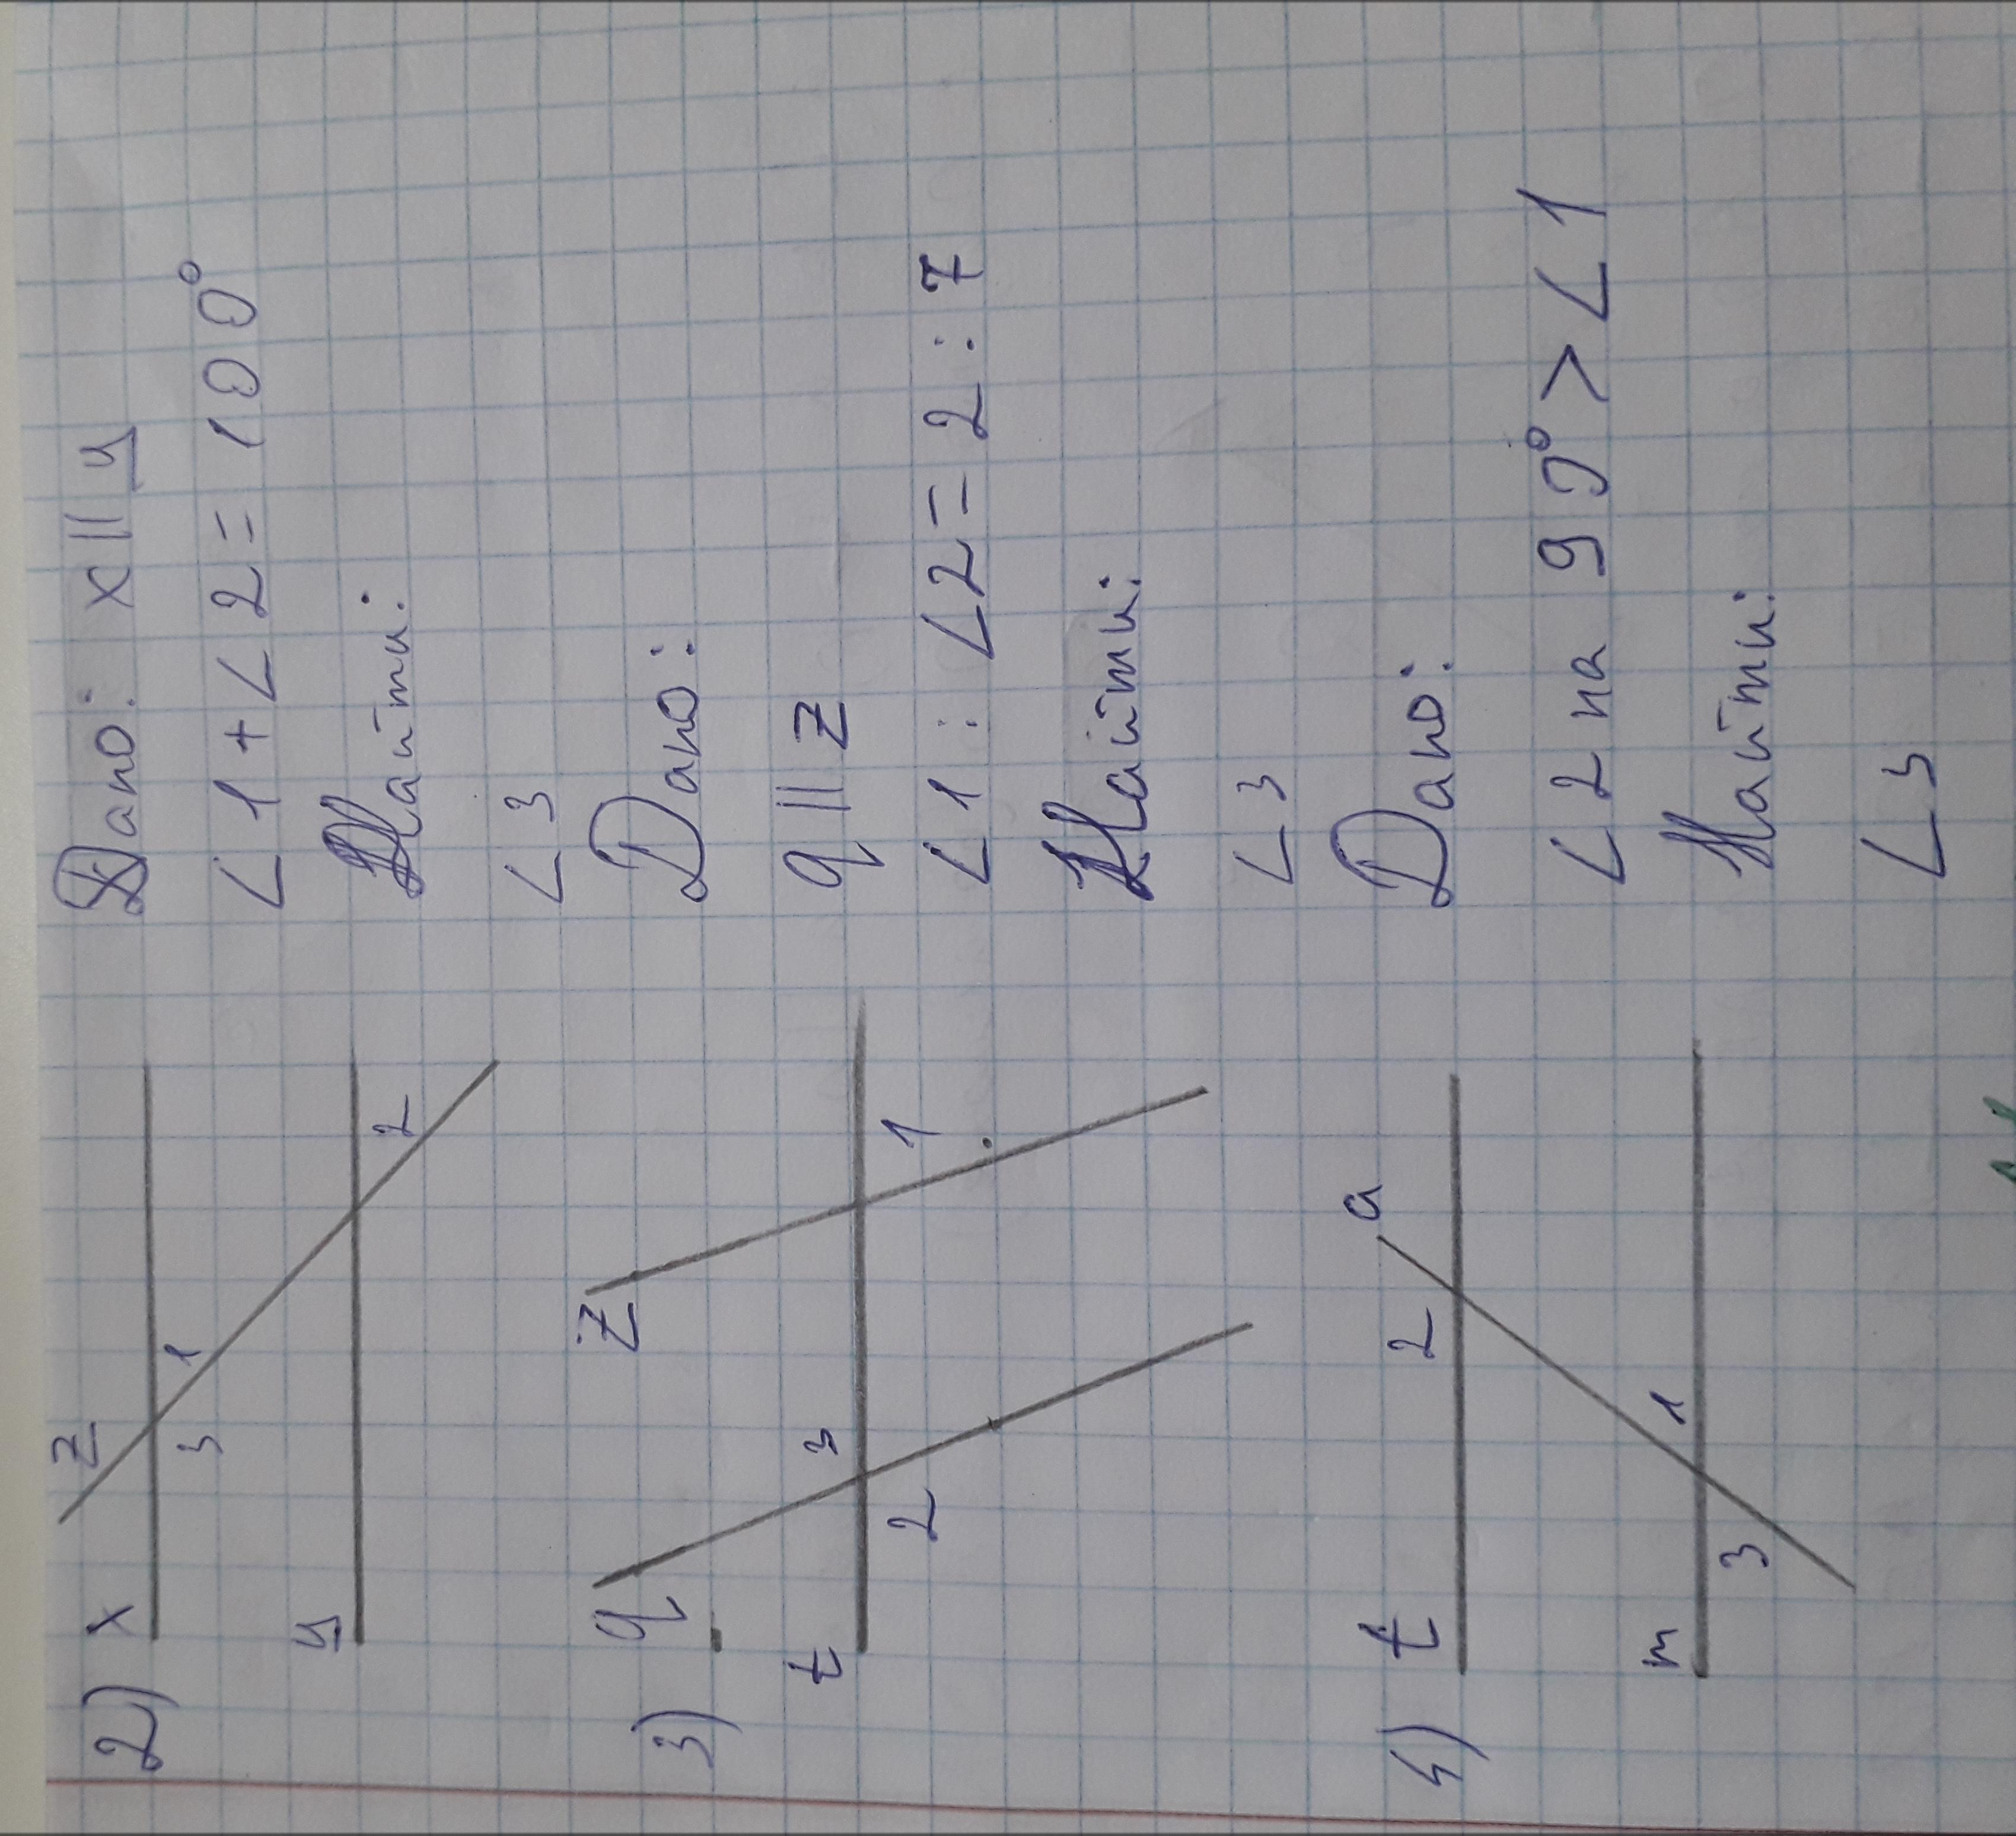 2) x z 1 3 y 2
Дано: x || y
∠1 + ∠2 = 100°
Найти:
∠3
3) q z t 3 2 1
Дано:
q || z
∠1 : ∠2 = 2 : 7
Найти:
∠3
4) t a 2 m 1 3
Дано:
∠2 на 90° > ∠1
Найти:
∠3